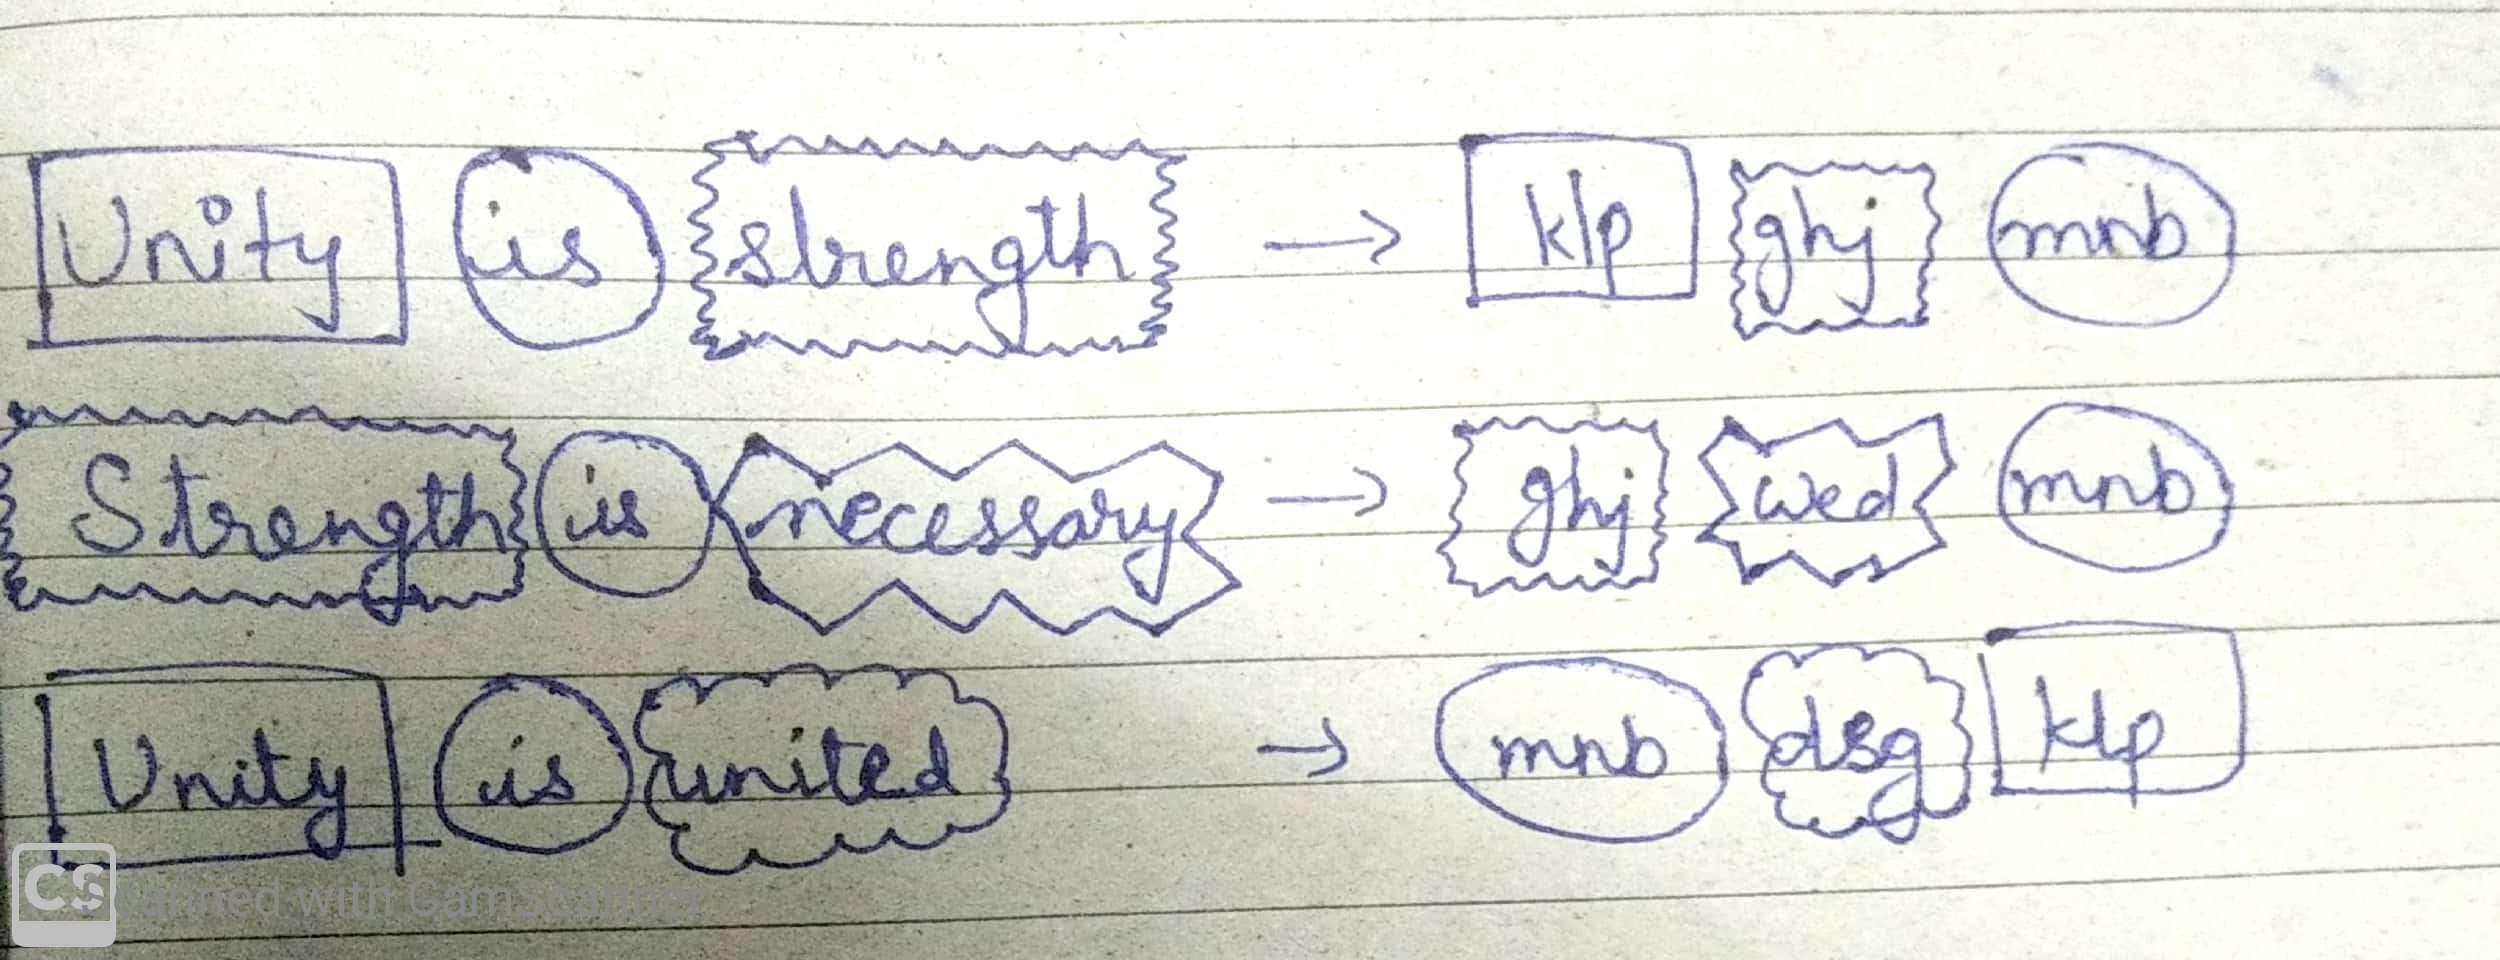 Unity is strength → klp ghj mnb
Strength is necessary → ghj wed mnb
Unity is united → mnb dsg klp
CS Scanned with CamScanner